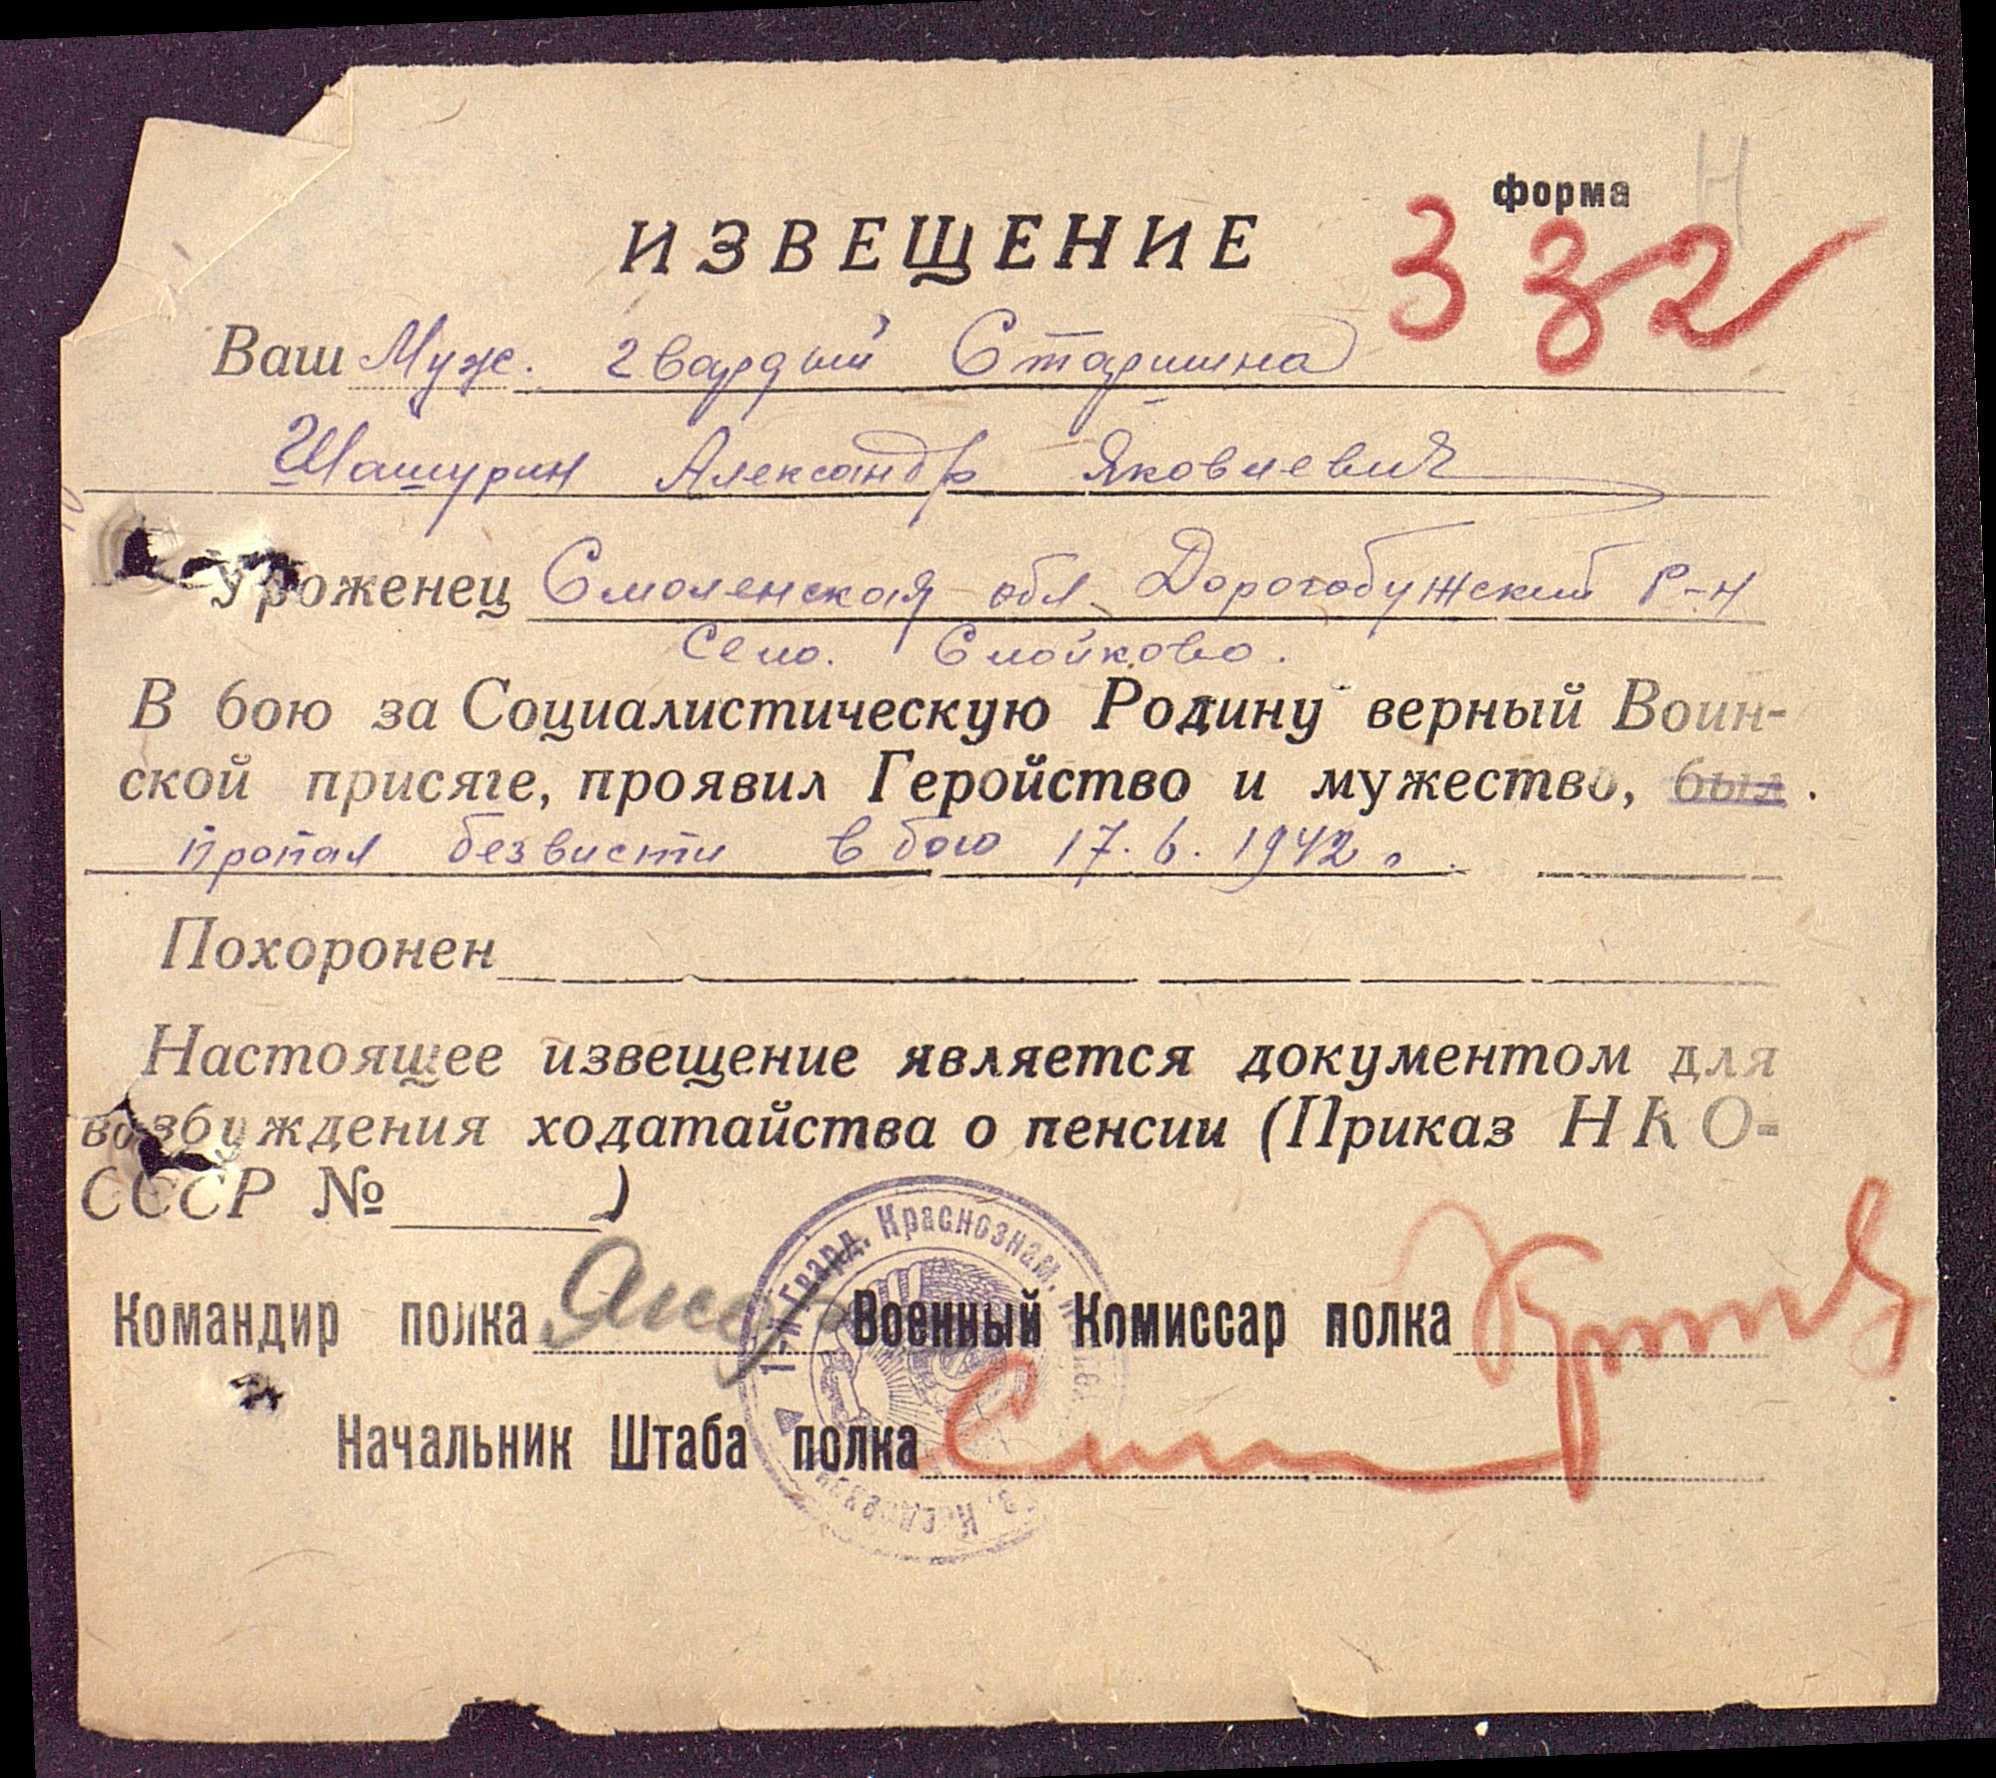 форма Н
332
ИЗВЕЩЕНИЕ
Ваш Муж. гвардый Старшина
Шашурин Александр Яковлевич
Уроженец Смоленская обл. Дорогобужский р-н
Село. Слойково.
В бою за Социалистическую Родину верный Воин-
ской присяге, проявил Геройство и мужество, был.
пропал безвисти в бою 17.6.1942 г.
Похоронен
Настоящее извещение является документом для
возбуждения ходатайства о пенсии (Приказ НКО-
СССР № )
1-й Гвард. Краснознам.
Командир полка Военный Комиссар полка
Начальник Штаба полка